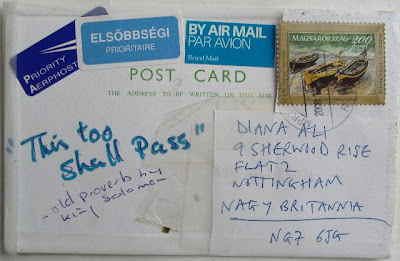 PRIORITY
AERPHOST
P A
ELSŐBBSÉGI
PRIORITAIRE
BY AIR MAIL
PAR AVION
Royal Mail
MAGYARORSZÁG 200
POST CARD
THE ADDRESS TO BE WRITTEN ON THIS SIDE
"This too
Shall Pass"
- old proverb by
King Solomon
DIANA ALI
9 SHERWOOD RISE
FLAT 2
NOTTINGHAM
NAGY BRITANNIA
NG7 6JG